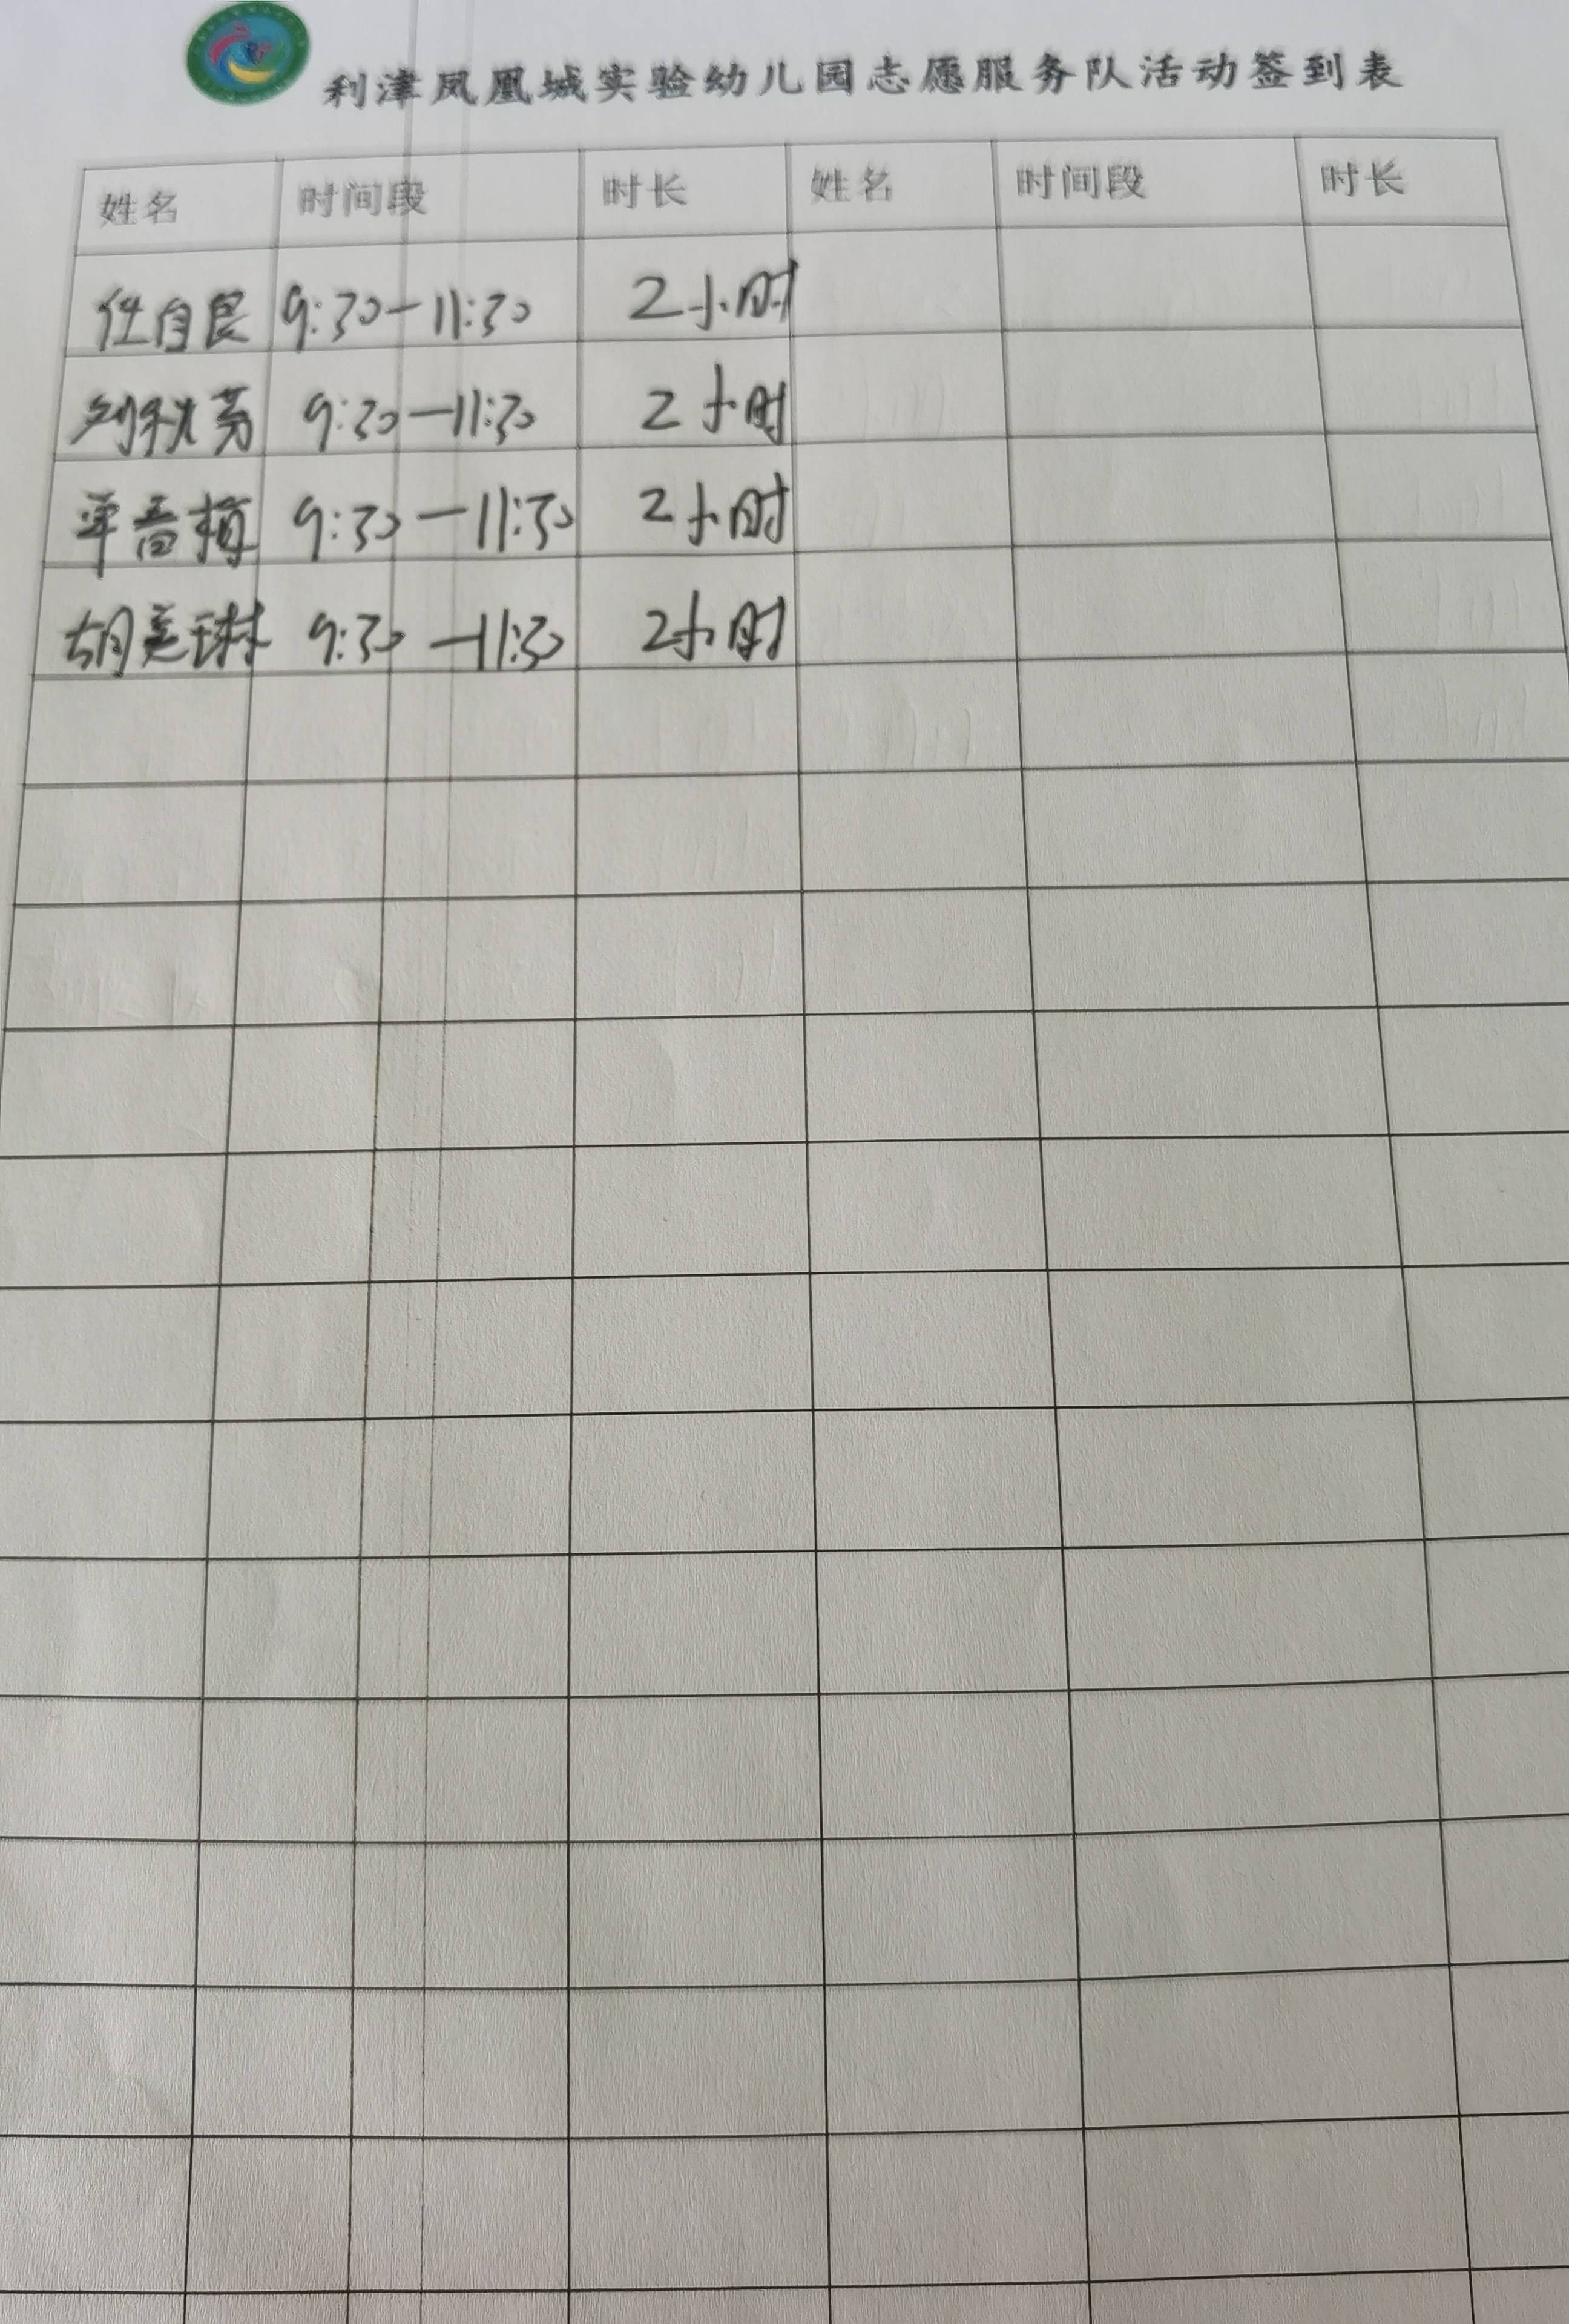 利津凤凰城实验幼儿园志愿服务队活动签到表
姓名 时间段 时长 姓名 时间段 时长
任自良 9:30-11:30 2小时
刘秋芳 9:30-11:30 2小时
9:30-11:30 2小时
胡美琳 9:30-11:30 2小时